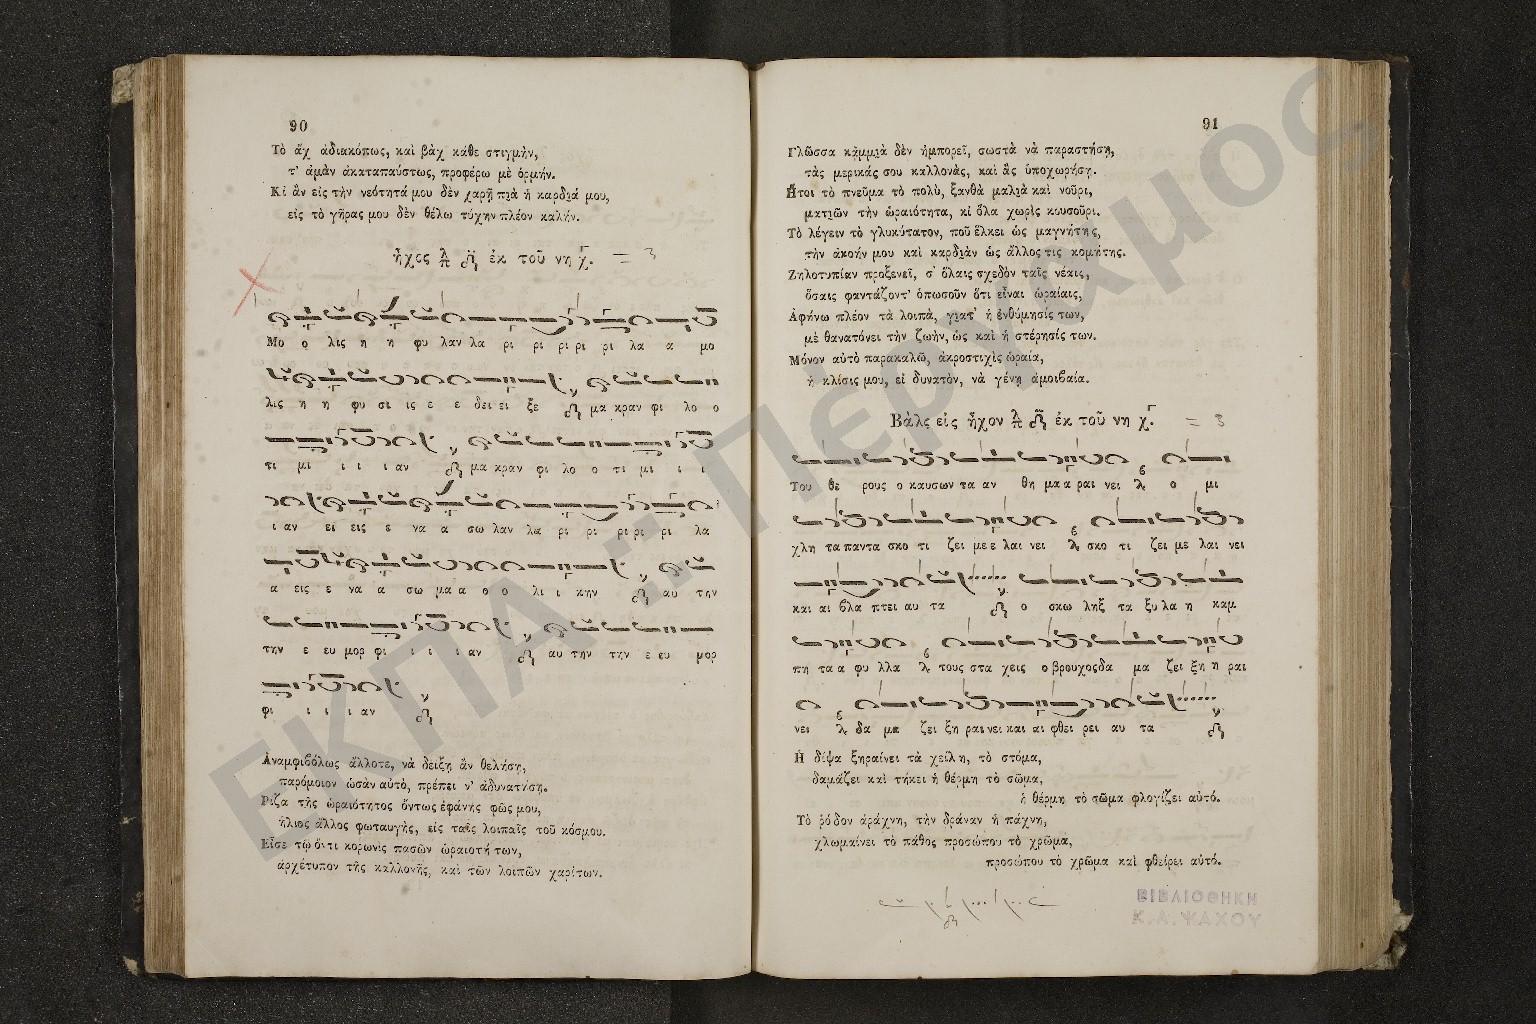 90
Τὸ ἄχ ἀδιακόπως, καὶ βὰχ κάθε στιγμὴν,
τ' ἀμὰν ἀκαταπαύστως, προφέρω μὲ ὁρμήν.
Κὶ ἂν εἰς τὴν νεότητά μου δὲν χαρῇ πιὰ ἡ καρδιά μου,
εἰς τὸ γῆρας μου δὲν θέλω τύχην πλέον καλήν.
ἦχος ἐκ τοῦ νη
Μο ο λις η η φυ λαν λα ρι ρι ρι ρι ρι λα α μο
λις η η φυ σι ις ε ε δει ει ξε μα κραν φι λο ο
τι μι ι ι ι αν μα κραν φι λο ο τι μι ι ι
ι αν ει εις ε να α σω λαν λα ρι ρι ρι ρι ρι λα
α εις ε να α σω μα α ο ο λι ι κην αυ την
την ε ευ μορ φι ι ι ι αν αυ την την ε ευ μορ
φι ι ι ι αν
Ἀναμφιβόλως ἄλλοτε, νὰ δείξῃ ἂν θελήσῃ,
παρόμοιον ὡσὰν αὐτὸ, πρέπει ν' ἀδυνατήσῃ.
Ρίζα τῆς ὡραιότητος ὄντως ἐφάνης φῶς μου,
ἥλιος ἄλλος φωταυγὴς, εἰς ταῖς λοιπαῖς τοῦ κόσμου.
Εἶσε τῷ ὄντι κορωνὶς πασῶν ὡραιοτήτων,
ἀρχέτυπον τῆς καλλονῆς, καὶ τῶν λοιπῶν χαρίτων.
91
Γλῶσσα κᾀμμιὰ δὲν ἠμπορεῖ, σωστὰ νὰ παραστήσῃ,
τὰς μερικάς σου καλλονὰς, καὶ ἂς ὑποχωρήσῃ.
Ἤτοι τὸ πνεῦμα τὸ πολὺ, ξανθὰ μαλιὰ καὶ νοῦρι,
ματιῶν τὴν ὡραιότητα, κἰ ὅλα χωρὶς κουσοῦρι.
Τὸ λέγειν τὸ γλυκύτατον, ποῦ ἕλκει ὡς μαγνήτης,
τὴν ἀκοήν μου καὶ καρδιὰν ὡς ἄλλος τις κομήτης.
Ζηλοτυπίαν προξενεῖ, σ' ὅλαις σχεδὸν ταῖς νέαις,
ὅσαις φαντάζοντ' ὁπωσοῦν ὅτι εἶναι ὡραίαις,
Ἀφήνω πλέον τὰ λοιπὰ, γιατ' ἡ ἐνθύμησίς των,
μὲ θανατόνει τὴν ζωὴν, ὡς καὶ ἡ στέρησίς των.
Μόνον αὐτὸ παρακαλῶ, ἀκροστιχὶς ὡραία,
ἡ κλίσις μου, εἰ δυνατὸν, νὰ γένῃ ἀμοιβαία.
Βὰλς εἰς ἦχον ἐκ τοῦ νη
Του θε ρους ο καυσων τα αν θη μα α ραι νει ο μι
χλη τα παντα σκο τι ζει με ε λαι νει σκο τι ζει με λαι νει
και αι βλα πτει αυ τα ο σκω ληξ τα ξυ λα η καμ
πη τα α φυ λλα τους στα χεις ο βρουχος δα μα ζει ξη η ραι
νει δα μα ζει ξη ραι νει και αι φθει ρει αυ τα
Ἡ δίψα ξηραίνει τὰ χείλη, τὸ στόμα,
δαμάζει καὶ τήκει ἡ θέρμη τὸ σῶμα,
ἡ θέρμη τὸ σῶμα φλογίζει αὐτό.
Τὸ ῥόδον ἀράχνη, τὴν δράναν ἡ πάχνη,
χλωμαίνει τὸ πάθος προσώπου τὸ χρῶμα,
προσώπου τὸ χρῶμα καὶ φθείρει αὐτό.
ΒΙΒΛΙΟΘΗΚΗ
Κ. Α. ΨΑΧΟΥ
ΕΚΠΑ :: Πέργαμος